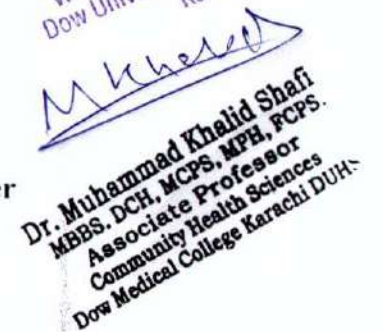 Dow Univ
M Khalid
er
Dr. Muhammad Khalid Shafi
MBBS. DCH, MCPS, MPH, FCPS.
Associate Professor
Community Health Sciences
Dow Medical College Karachi DUHS